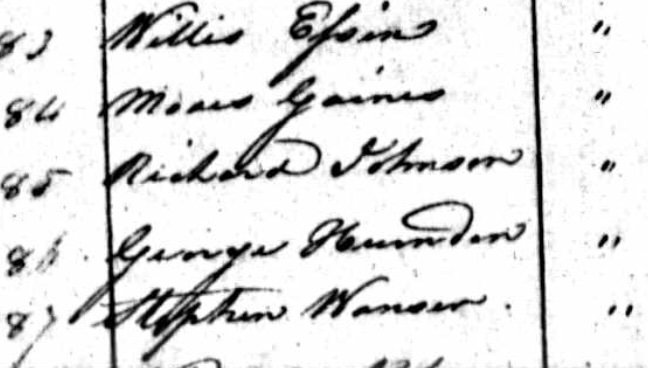 83 Willis Essin "
84 Moses Gaines "
85 Richard Johnson "
86 George Hernden "
87 Stephen Wanser "